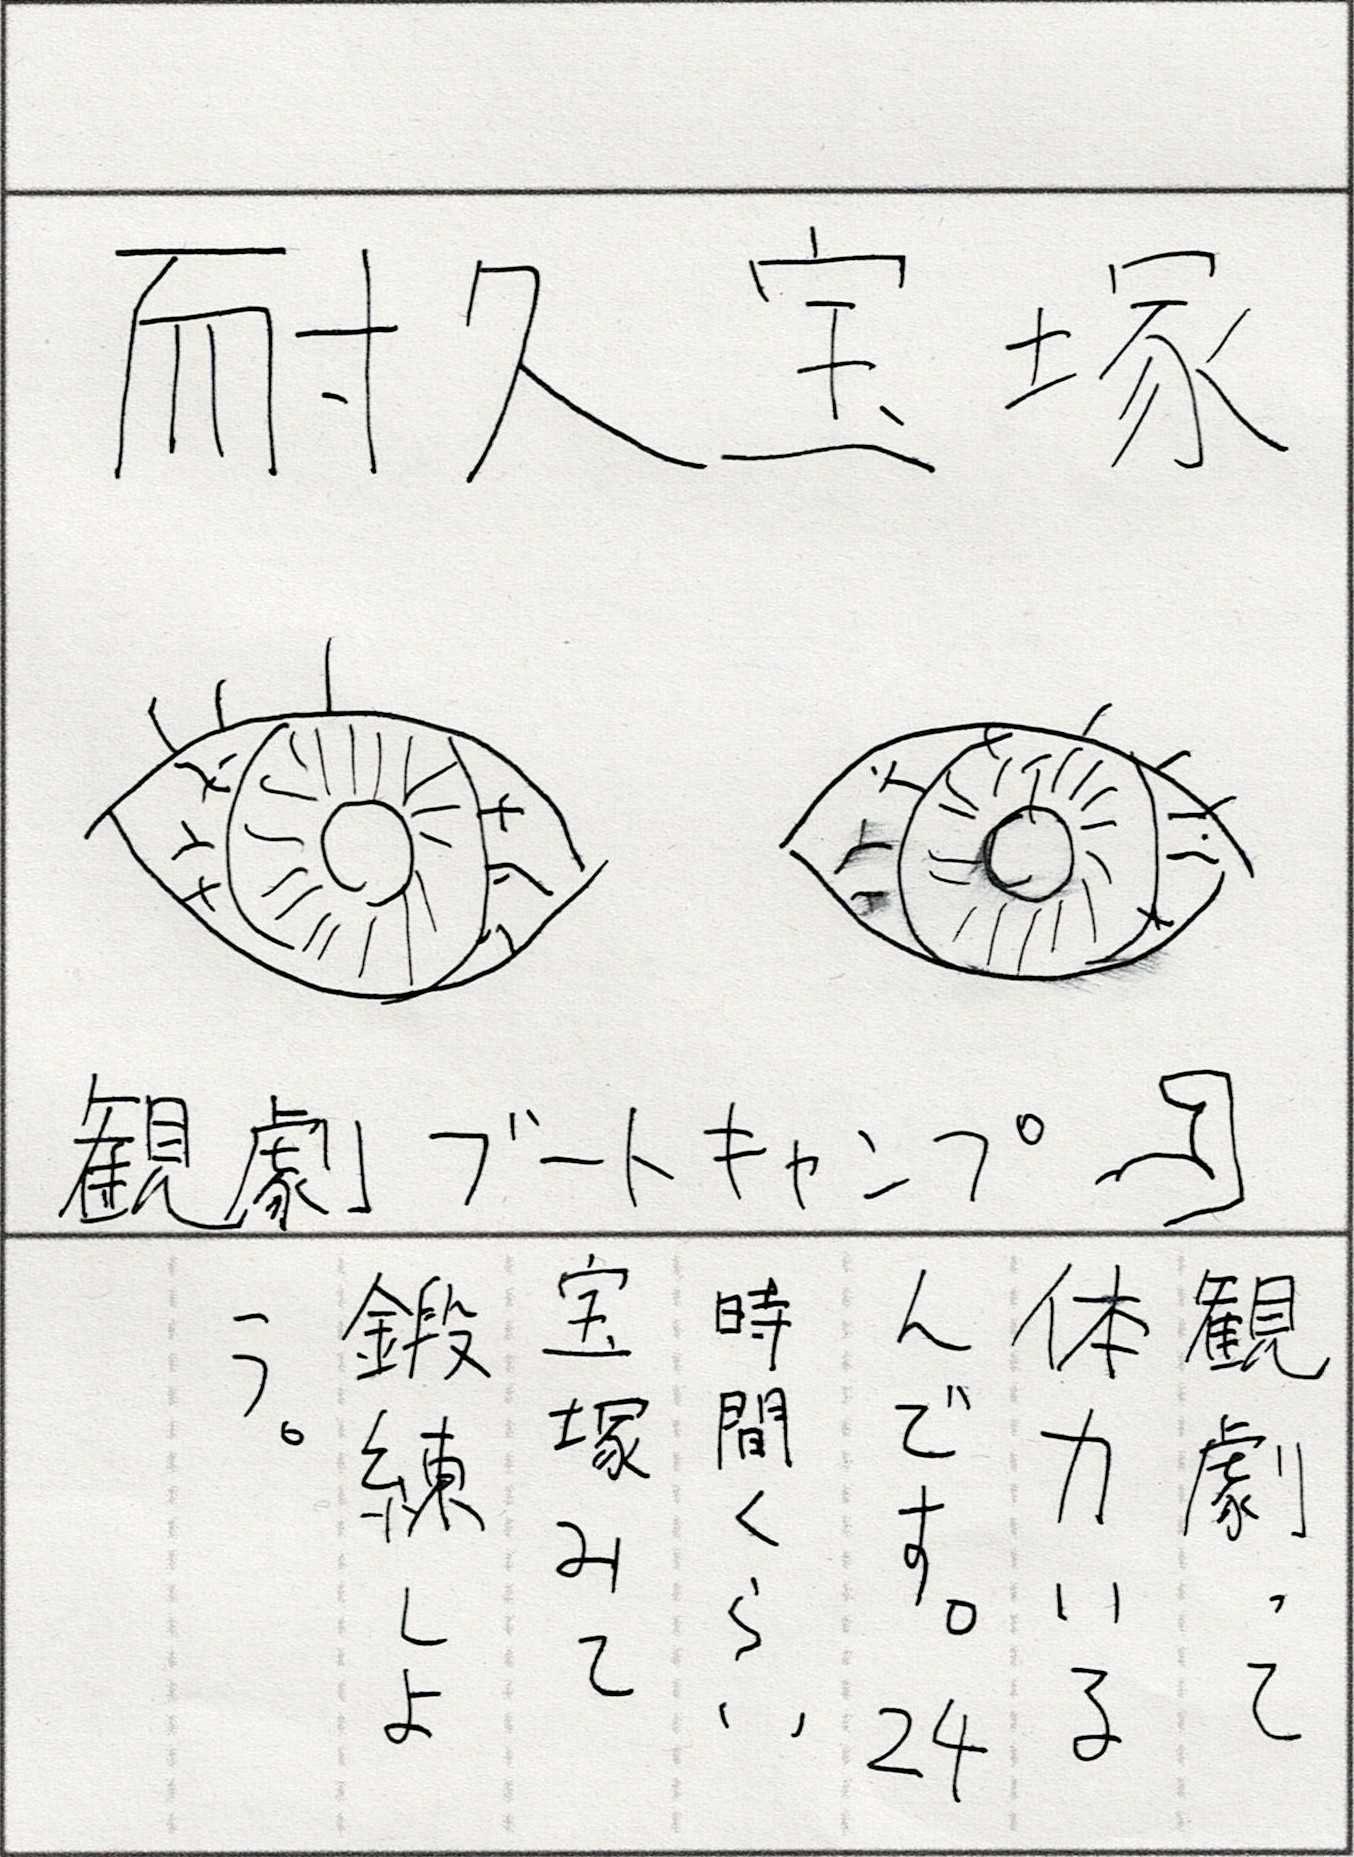 耐久宝塚
観劇ブートキャンプ
観劇って
体力いる
んです。24
時間くらい
宝塚みて
鍛練しよ
う。